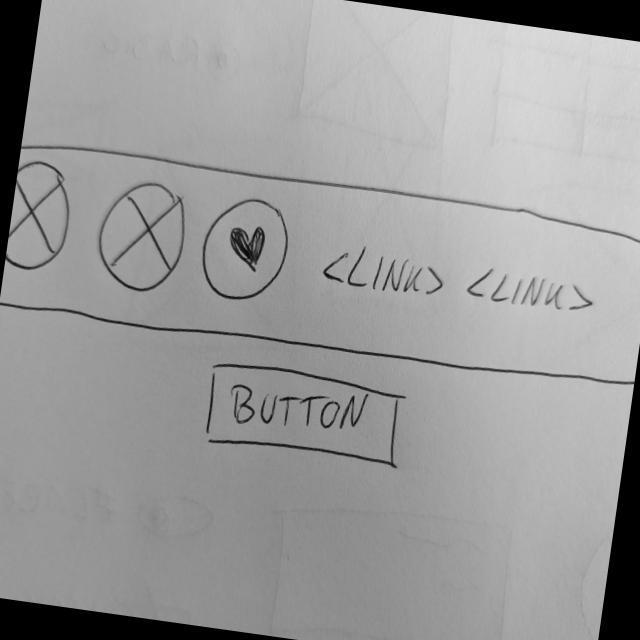 <LINK> <LINK>
BUTTON